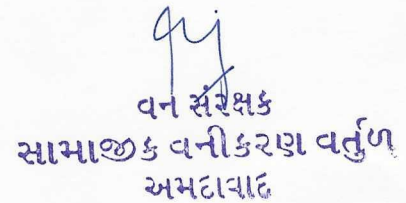 વન સંરક્ષક
સામાજીક વનીકરણ વર્તુળ
અમદાવાદ